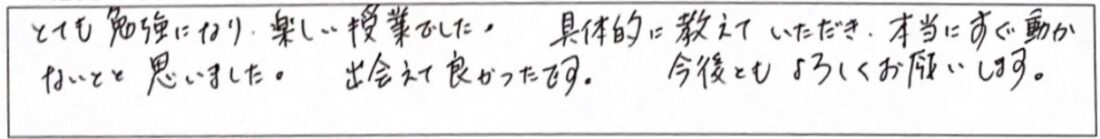 とても勉強になり、楽しい授業でした。 具体的に教えていただき、本当にすぐ動か
ないとと思いました。 出会えて良かったです。 今後ともよろしくお願いします。